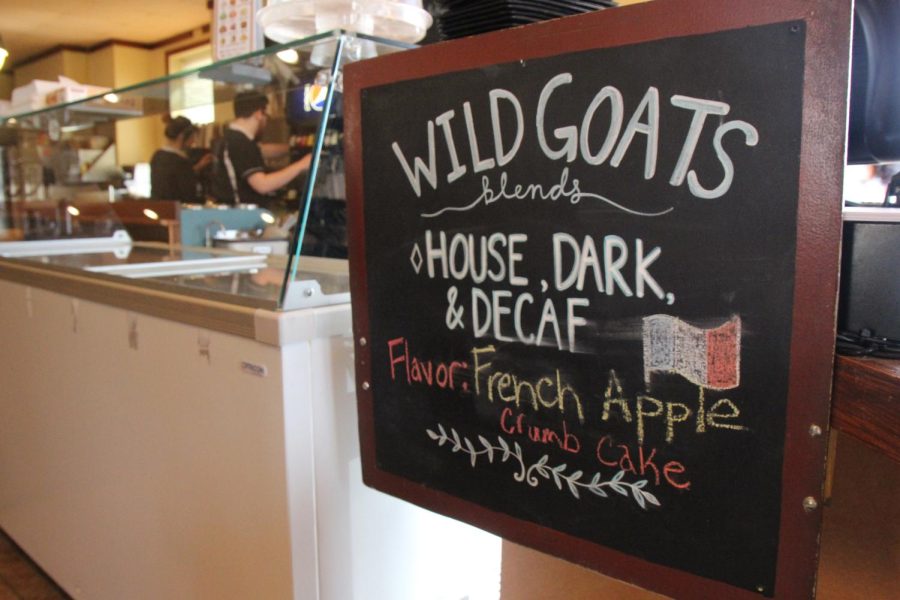 WILD GOATS
blends
◊HOUSE, DARK,
& DECAF
Flavor: French Apple
Crumb Cake